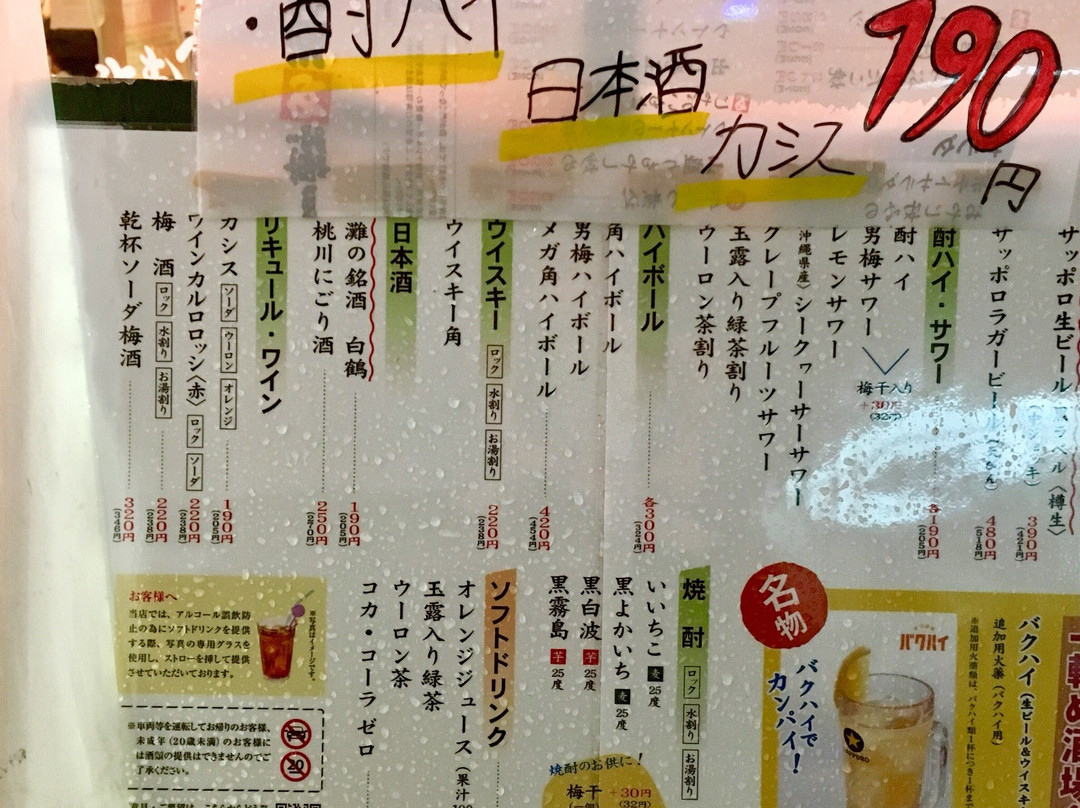 ・酎ハイ
日本酒
カシス
190
円
サッポロラガービール
480円
(518円)
390円
(421円)
酎ハイ・サワー
各190円
(205円)
酎ハイ
男梅サワー
梅干入り
+30円
(32円)
レモンサワー
沖縄県産)シークヮーサーサワー
グレープフルーツサワー
玉露入り緑茶割り
ウーロン茶割り
ハイボール
各300円
(324円)
角ハイボール
男梅ハイボール
メガ角ハイボール
420円
(454円)
ウイスキー ロック 水割り お湯割り
220円
(238円)
ウイスキー角
日本酒
灘の銘酒 白鶴
190円
(205円)
桃川にごり酒
250円
(270円)
リキュール・ワイン
カシス ソーダ ウーロン オレンジ
190円
(205円)
ワインカルロロッシ〈赤〉 ロック ソーダ
220円
(238円)
梅酒 ロック 水割り お湯割り
220円
(238円)
乾杯ソーダ梅酒
320円
(346円)
名物
バクハイ(生ビール&ウイスキ
追加用火薬(バクハイ用)
バクハイ
バクハイで
カンパイ!
焼酎 ロック 水割り お湯割り
いいちこ 麦 25度
黒よかいち 麦 25度
黒白波 芋 25度
黒霧島 芋 25度
焼酎のお供に!
梅干 +30円
(一個) (32円)
ソフトドリンク
オレンジジュース(果汁
玉露入り緑茶
ウーロン茶
コカ・コーラ ゼロ
お客様へ
当店では、アルコール誤飲防
止の為にソフトドリンクを提供
する際、写真の専用グラスを
使用し、ストローを挿して提供
させていただいております。
※写真はイメージです。
※車両等を運転してお帰りのお客様、
未成年(20歳未満)のお客様に
は酒類の提供はできませんのでご
了承ください。
20